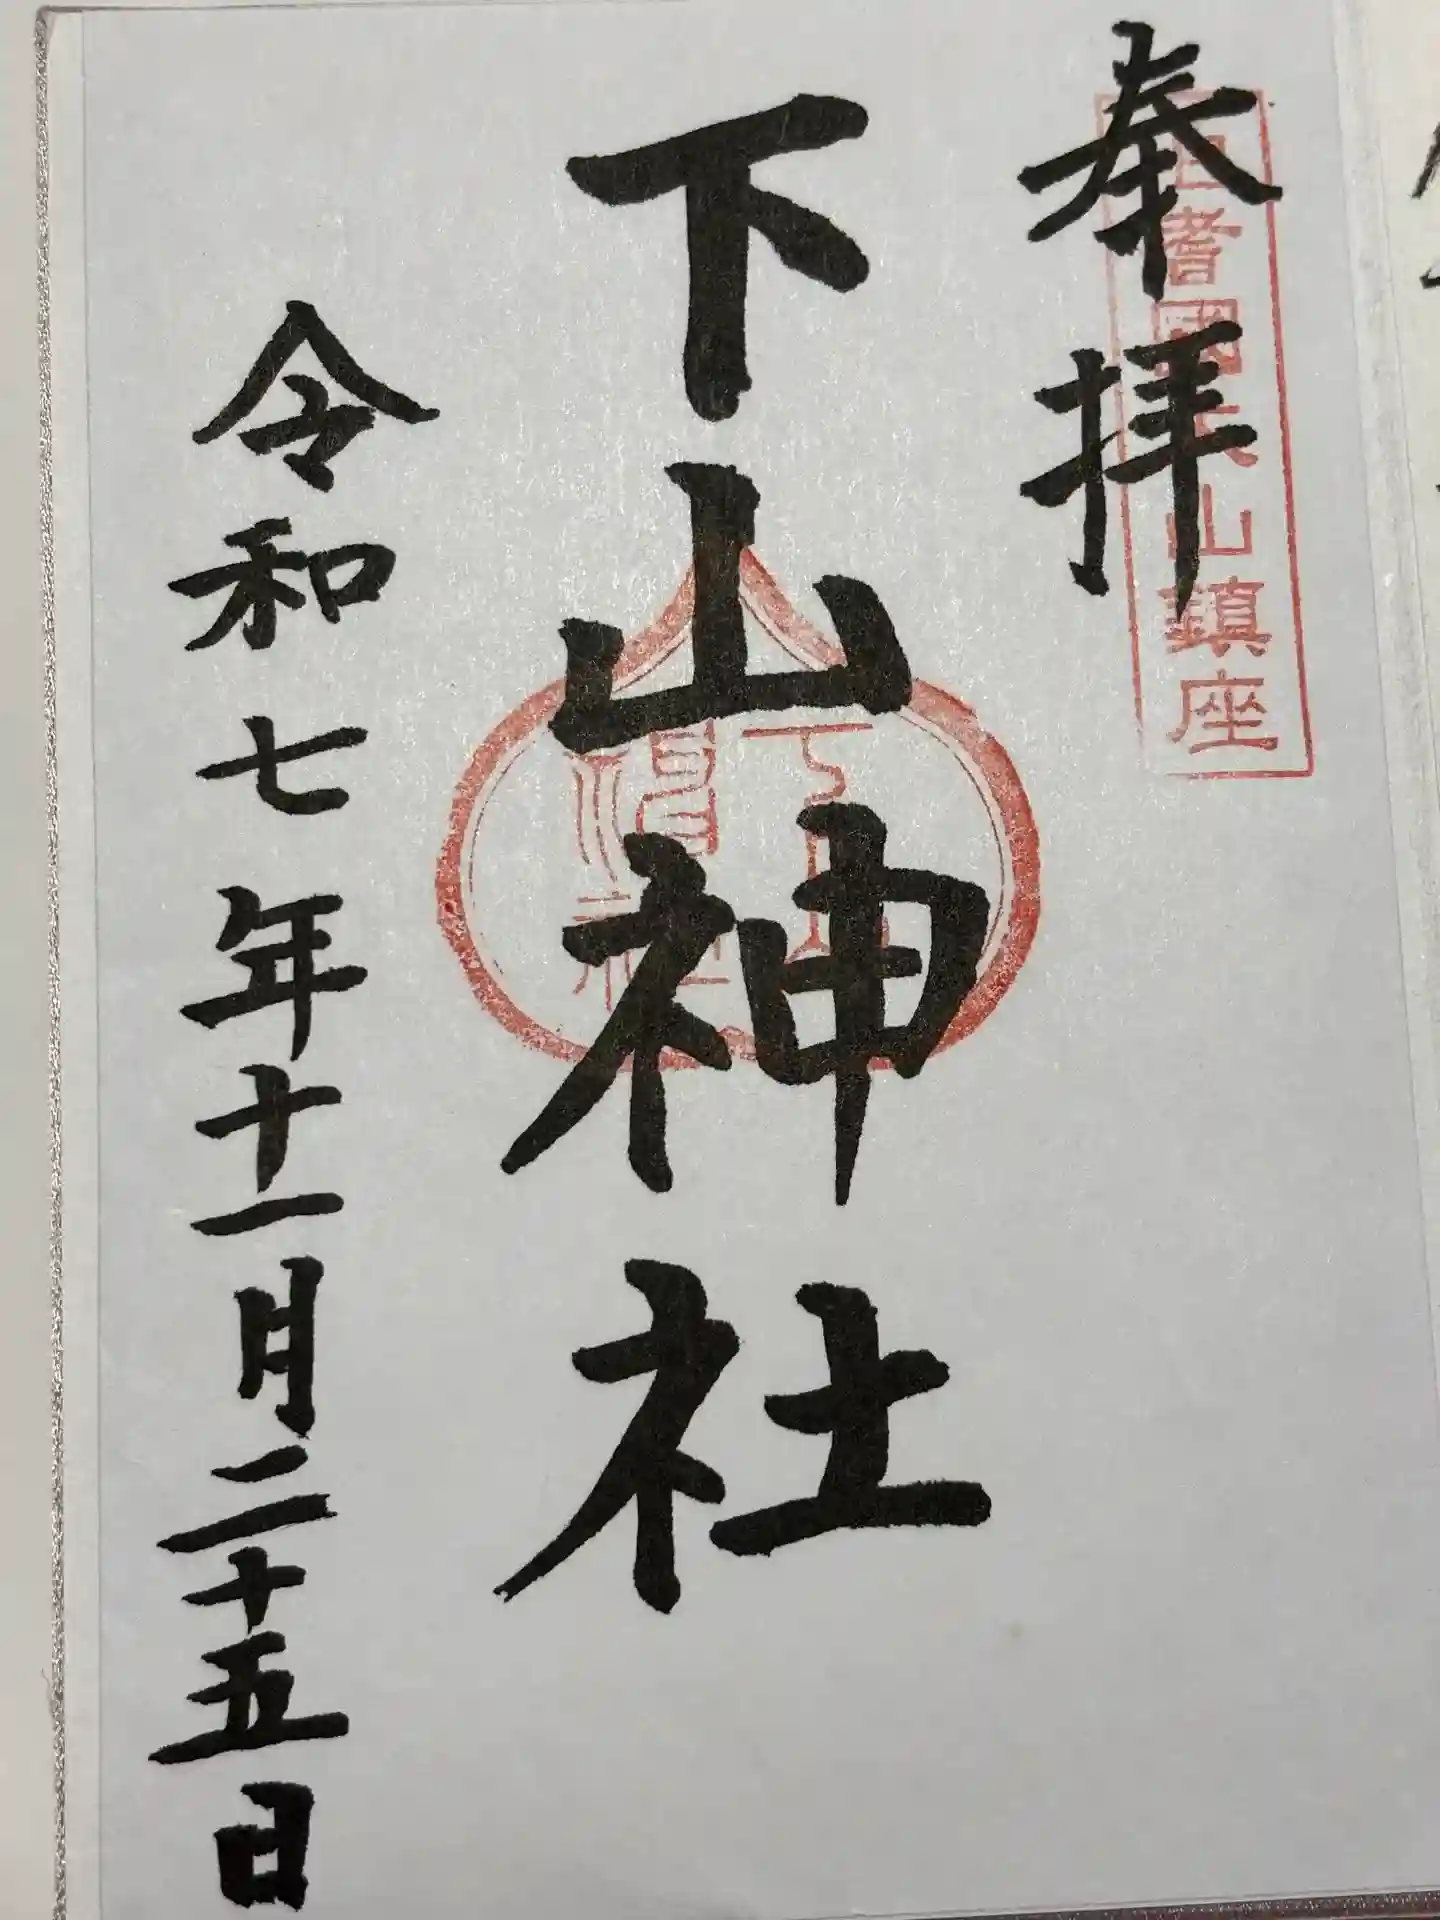 奉拝
伯耆國大山鎮座
下山神社
令和七年十一月二十五日